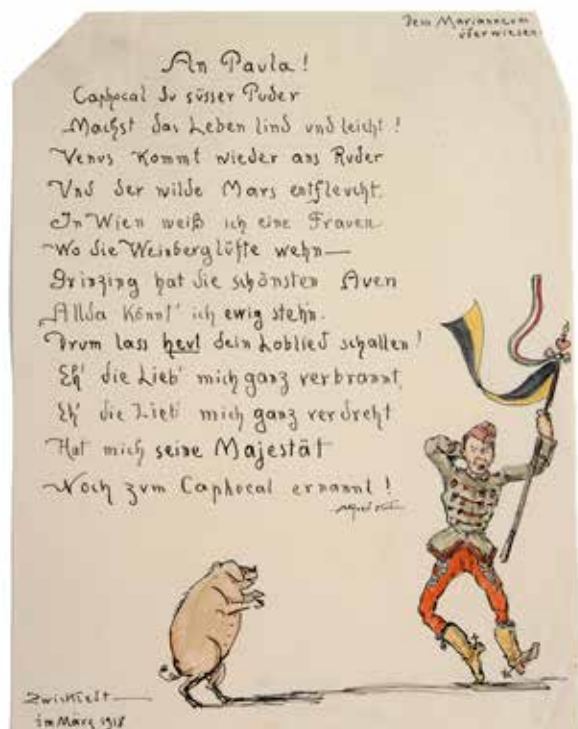 Dem Marianneum
überwiesen.
An Paula!
Caphocal du süsser Puder
Machst das Leben lind und leicht!
Venus kommt wieder ans Ruder
Und der wilde Mars entfleucht.
In Wien weiß ich eine Frauen
Wo die Weinberglüfte wehn—
Grinzing hat die schönsten Auen
Allda könnt' ich ewig stehn.
Drum lass heut dein Loblied schallen!
Eh' die Lieb' mich ganz verbrannt,
Eh' die Lieb' mich ganz verdreht
Hat mich seine Majestät
Noch zum Caphocal ernannt!
im März 1918